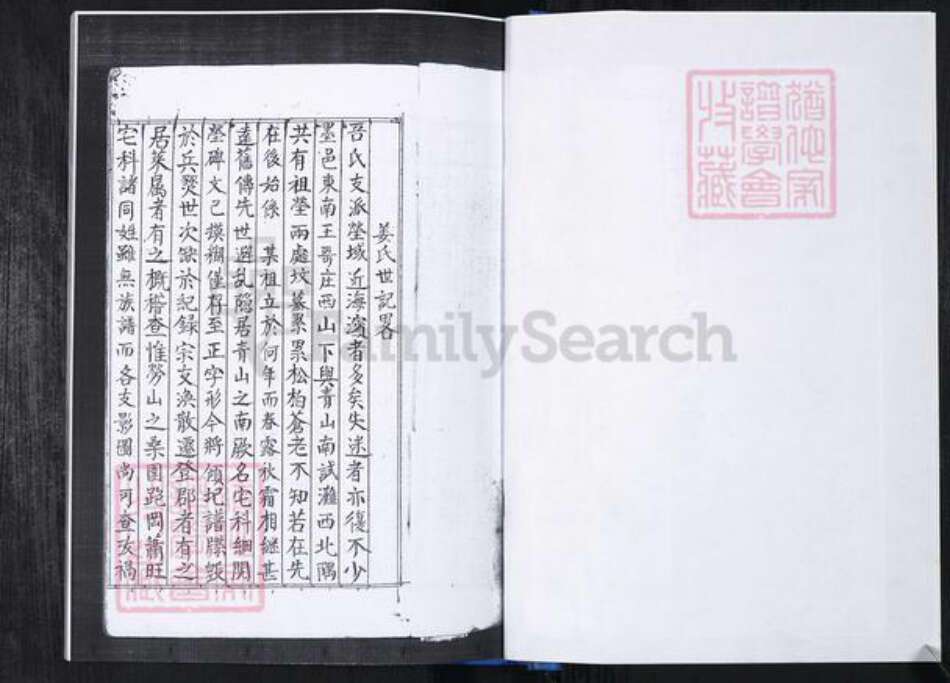 猶他家
譜學會
收藏
姜氏世記畧
吾氏支派塋域近海濱者多矣失迷者亦復不少
墨邑東南王哥庄西山下與青山南試灘西北隅
共有祖塋兩處坟墓累累松柏蒼老不知若在先
在後始係 某祖立於何年而春露秋霜相継甚
遠舊傳先世避乱隠居青山之南厥名宅科細閱
塋碑文已模糊僅存至正字形今將傾圮譜牒毀
於兵燹世次缺於紀録宗支渙散遷登郡者有之
居萊属者有之概稽查惟勞山之桑園跑岡蕭旺
宅科諸同姓雖無族譜而各支影圖尚可查攷禍
FamilySearch